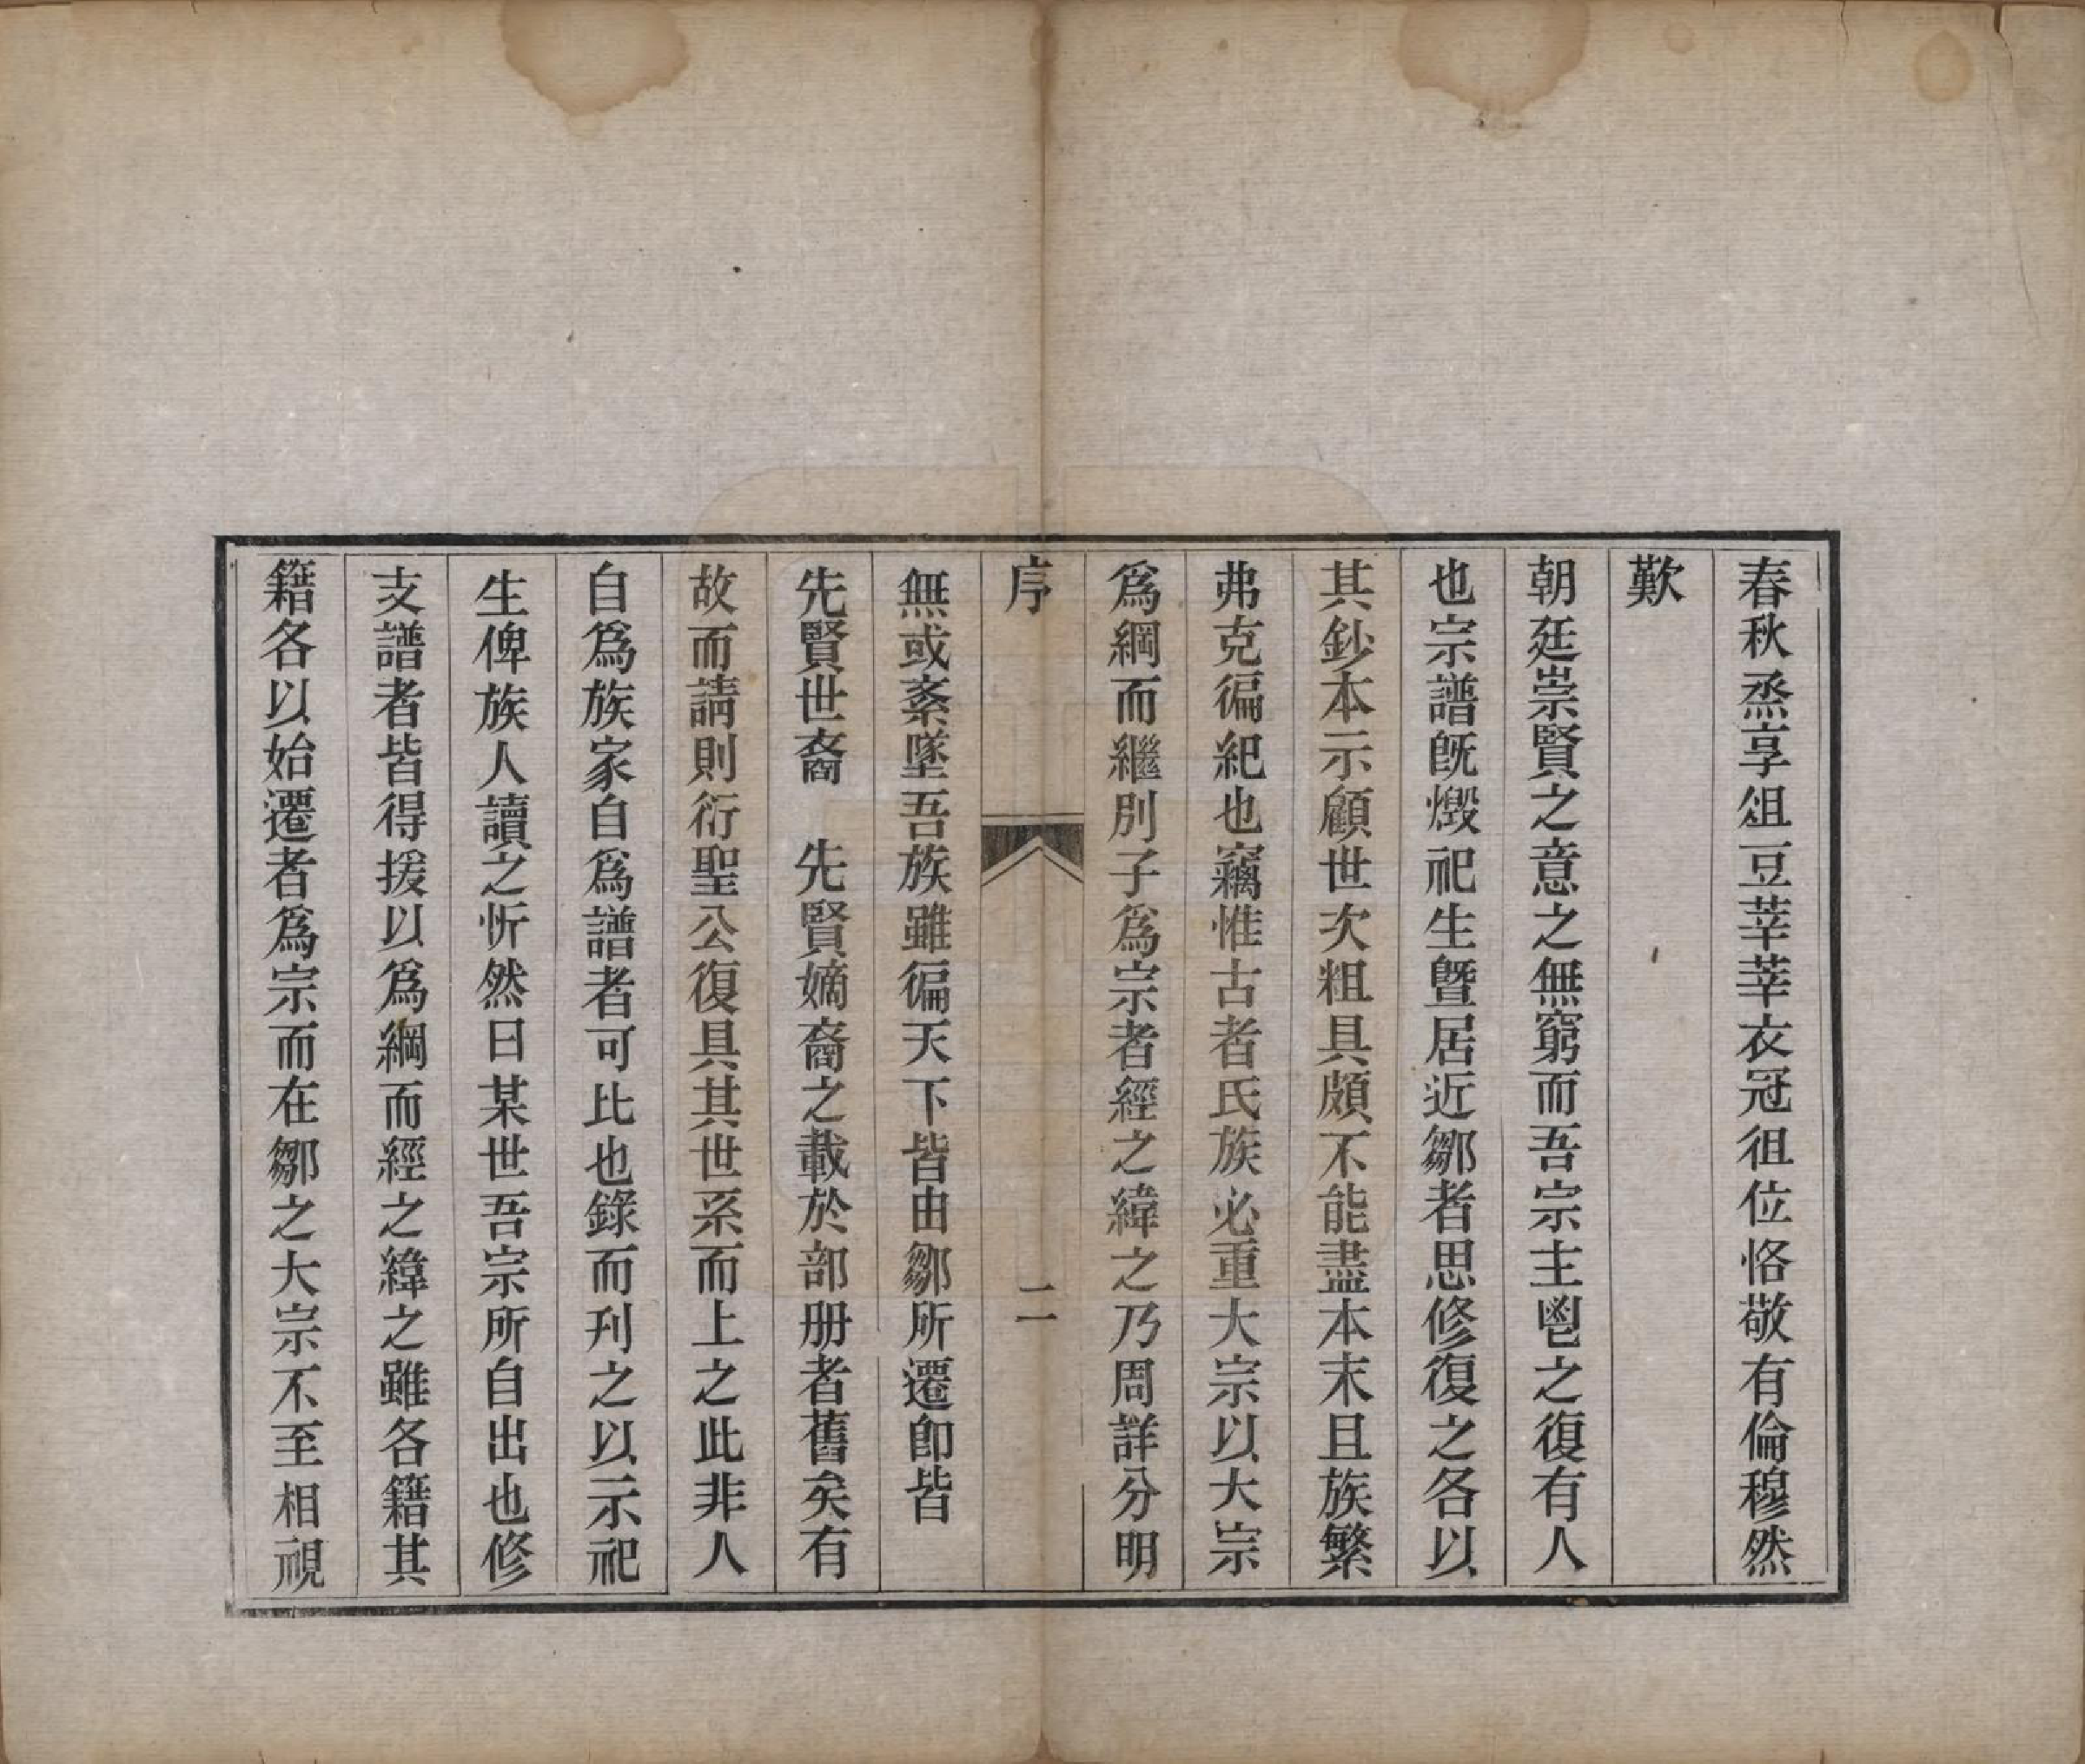 春秋烝享俎豆莘莘衣冠徂位恪敬有倫穆然
歎
朝廷崇賢之意之無窮而吾宗主鬯之復有人
也宗譜旣燬祀生曁居近鄒者思修復之各以
其鈔本示顧世次粗具頗不能盡本末且族繁
弗克徧紀也竊惟古者氏族必重大宗以大宗
爲綱而繼別子爲宗者經之緯之乃周詳分明
序
二
無或紊墜吾族雖徧天下皆由鄒所遷卽皆
先賢世裔　先賢嫡裔之載於部册者舊矣有
故而請則衍聖公復具其世系而上之此非人
自爲族家自爲譜者可比也錄而刋之以示祀
生俾族人讀之忻然曰某世吾宗所自出也修
支譜者皆得援以爲綱而經之緯之雖各籍其
籍各以始遷者爲宗而在鄒之大宗不至相視